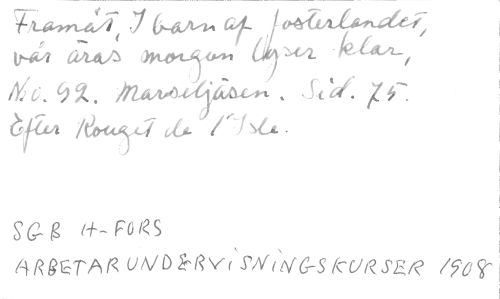 Framåt, I barn af fosterlandet,
vår äras morgon lyser klar,
N:o. 92. Marseljäsen. Sid. 75.
Efter Rouget de l'Isle.
SGB H-FORS
ARBETARUNDERVISNINGSKURSER 1908